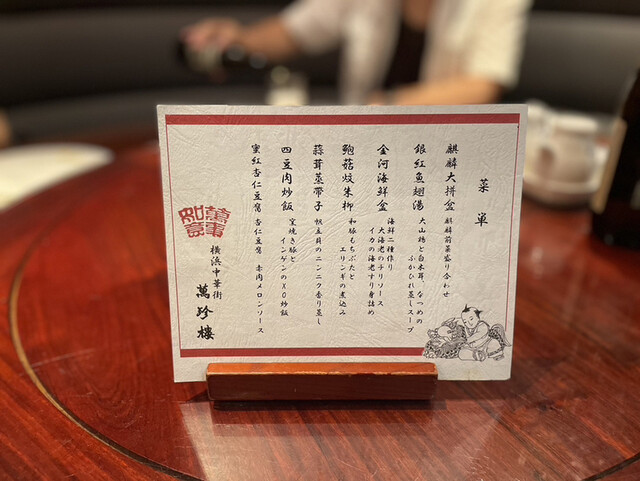 菜単
麒麟大拼盆 麒麟前菜盛り合わせ
銀紅魚翅湯 大山鶏と白木耳、なつめの
ふかひれ蒸しスープ
金河海鮮盆 海鮮二種作り
大海老のチリソース
イカの海老すり身詰め
鮑菇炆朱柳 和豚もちぶたと
エリンギの煮込み
蒜茸蒸帯子 帆立貝のニンニク香り蒸し
四豆肉炒飯 窯焼き豚と
インゲンのXO炒飯
蜜紅杏仁豆腐 杏仁豆腐 赤肉メロンソース
萬事
如意
横浜中華街
萬珍樓